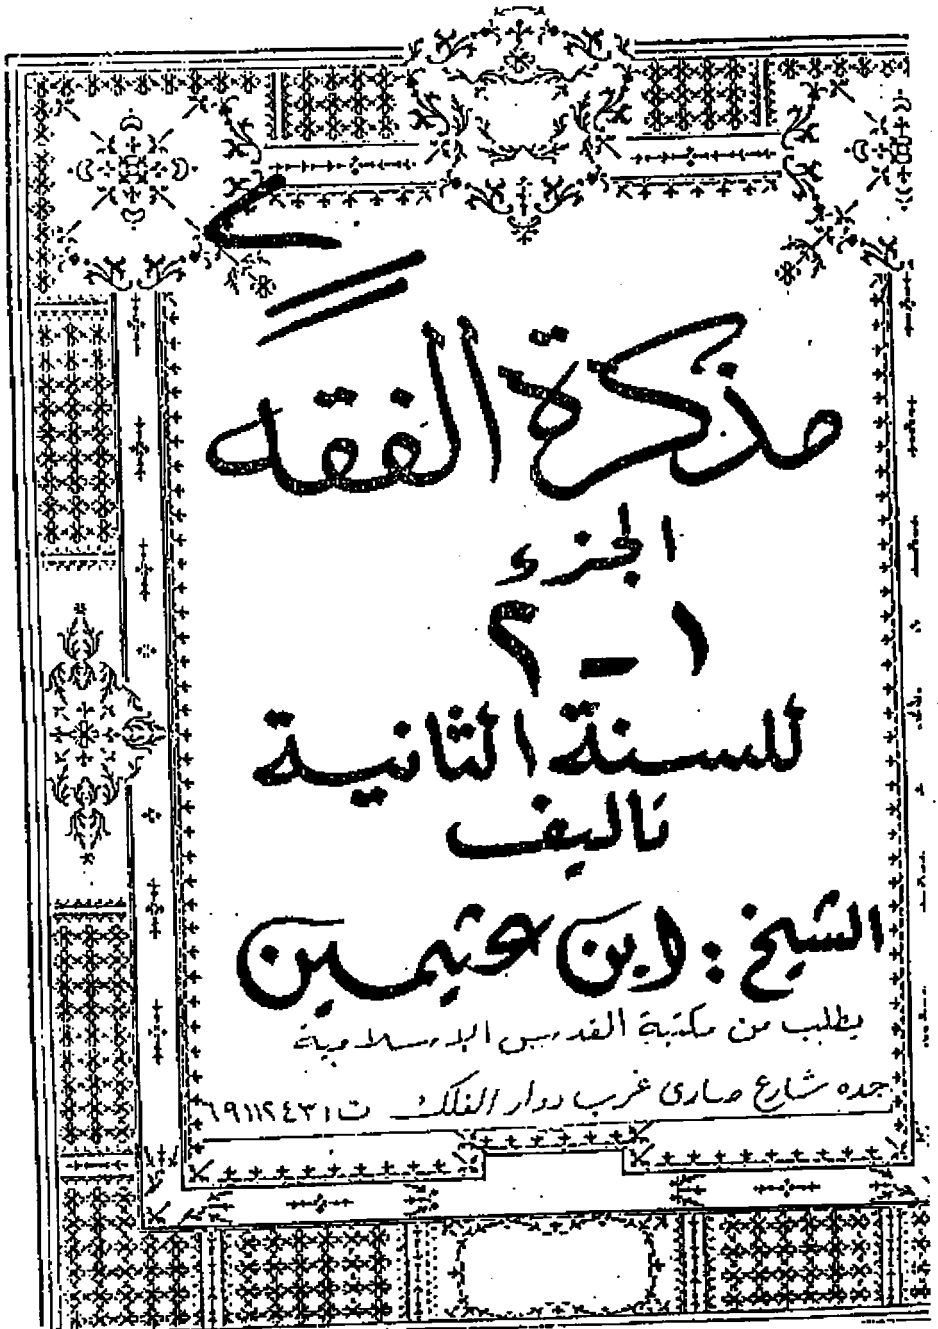 مذكرة الفقه
الجزء
١ - ٢
للسنة الثانية
تأليف
الشيخ : ابن عثيمين
يطلب من مكتبة القدس الاسلامية
جده شارع صارى غرب دوار الفلك ت